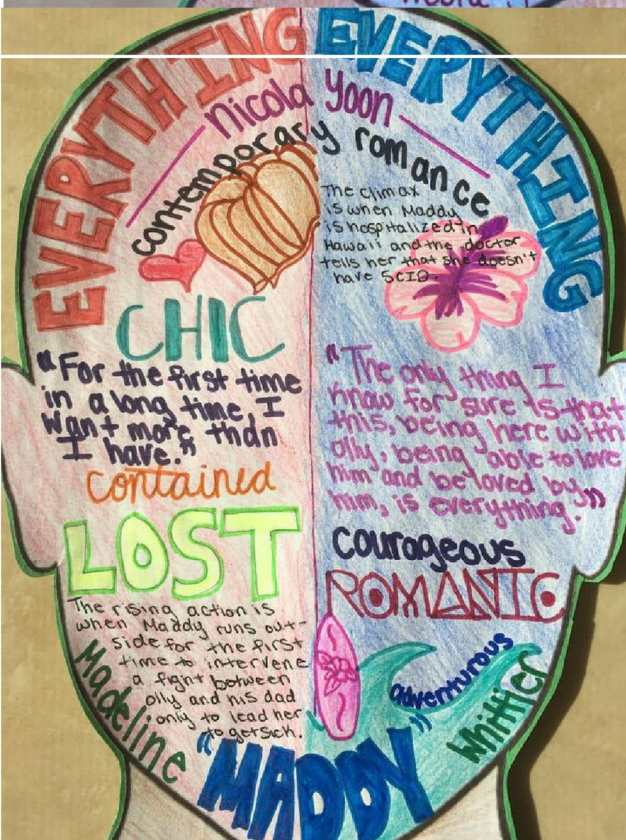 EVERYTHING
EVERYTHING
Nicola Yoon
contemporary romance
The climax
is when Maddy
is hospitalized in
Hawaii and the doctor
tells her that she doesn't
have SCID.
CHIC
"For the first time
in a long time, I
want more than
I have."
contained
LOST
The rising action is
when Maddy runs out-
side for the first
time to intervene
a fight between
olly and his dad
only to lead her
to get sick.
"The only thing I
know for sure is that
this, being here with
olly, being able to love
him and be loved by
him, is everything."
courageous
ROMANTIC
adventurous
Madeline
"MADDY"
Whittier